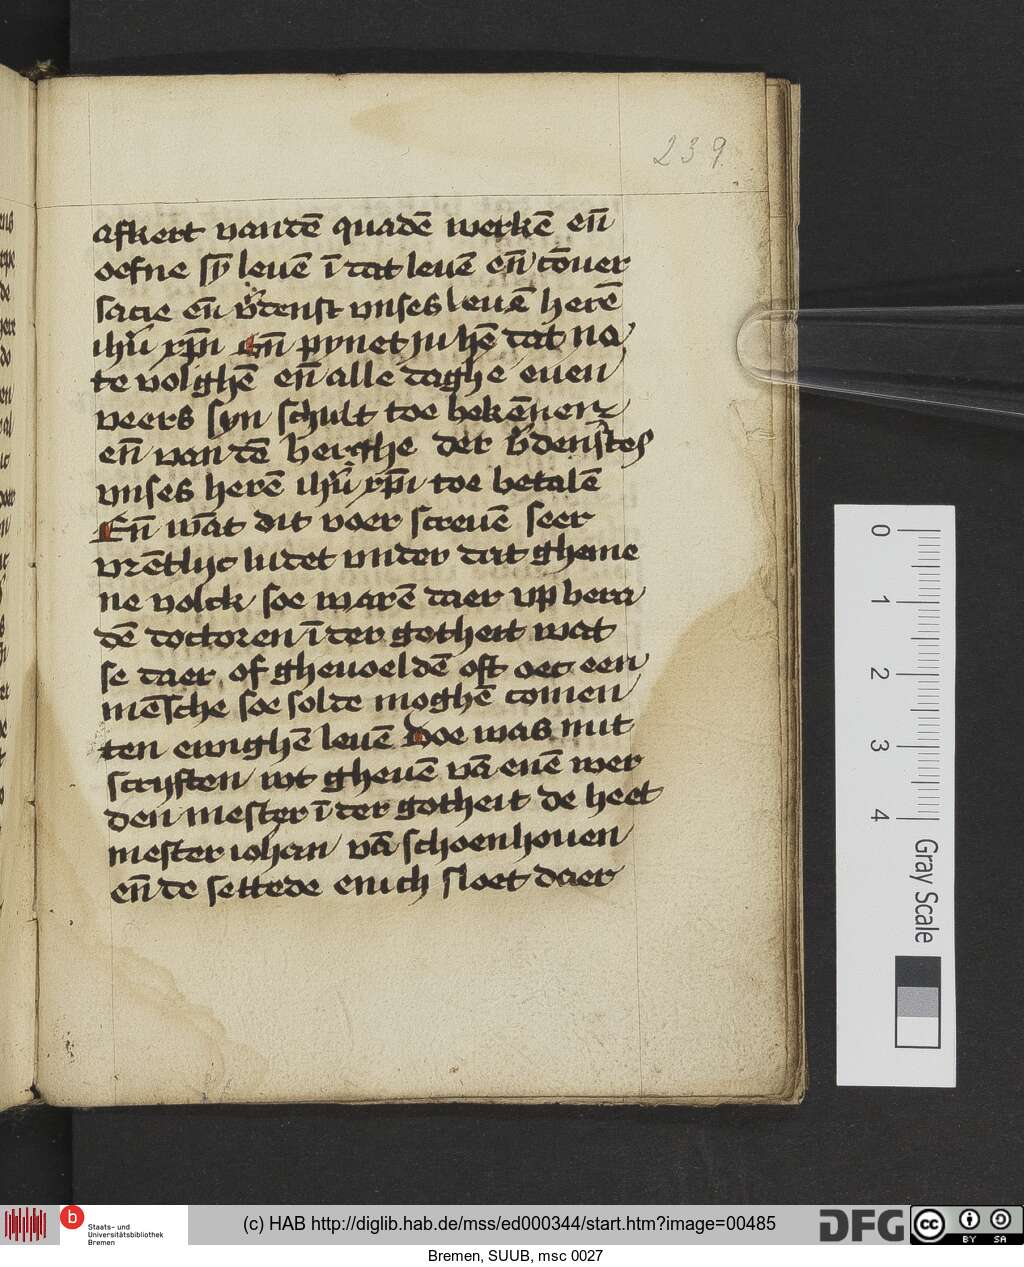 239
afkert vanden̄ quadē werkē en̄
oefne sȳ leuē ī dat leuē en̄ cōuer
sacie en̄ v̓denst vnses leuē herē
ihū xp̄i En̄ pynet ju hē dat na
te volghē en̄ alle daghe euen
veers syn schult toe bekēnen
en̄ van dē berghe der v̓denstes
vnses herē ihū xp̄i toe betalē
En̄ wāt dit voer screuē seer
vrētlyc ludet vnder dat gheme
ne volck soe warē daer vp bera
dē doctoren ī der gotheit wat
se daer of gheuoeldē oft oec een
mēsche soe solde moghē comen
ten ewighē leuē Doe was mit
scryften wt gheuē vā enē wer
den mester ī der gotheit de heet
mester iohan vā schoenhouen
en̄ de settede enich sloet daer
0 1 2 3 4
Gray Scale
b
Staats- und
Universitätsbibliothek
Bremen
(c) HAB http://diglib.hab.de/mss/ed000344/start.htm?image=00485
DFG
cc BY SA
Bremen, SUUB, msc 0027